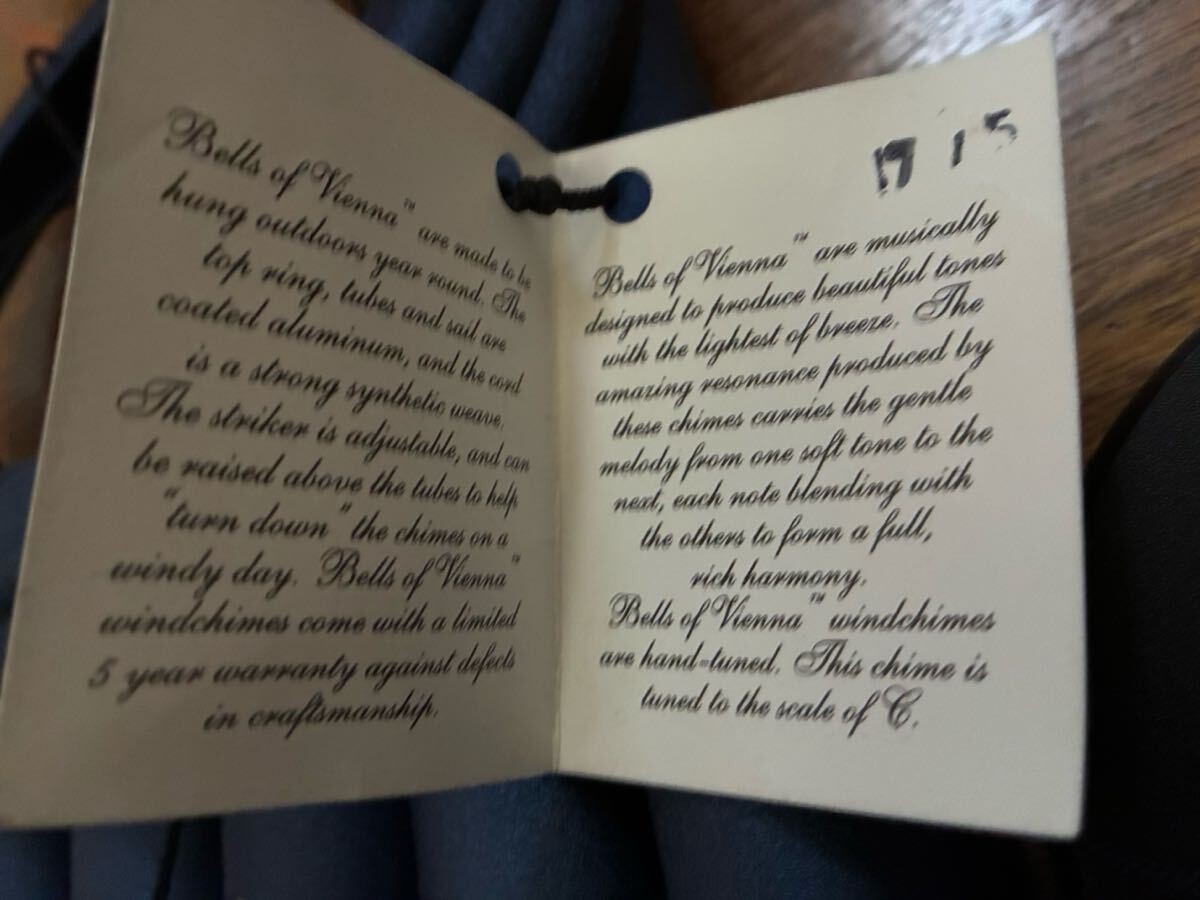 Bells of Vienna™ are made to be
hung outdoors year round. The
top ring, tubes and sail are
coated aluminum, and the cord
is a strong synthetic weave.
The striker is adjustable, and can
be raised above the tubes to help
"turn down" the chimes on a
windy day. Bells of Vienna™
windchimes come with a limited
5 year warranty against defects
in craftsmanship.
Bells of Vienna™ are musically
designed to produce beautiful tones
with the lightest of breeze. The
amazing resonance produced by
these chimes carries the gentle
melody from one soft tone to the
next, each note blending with
the others to form a full,
rich harmony.
Bells of Vienna™ windchimes
are hand-tuned. This chime is
tuned to the scale of C.